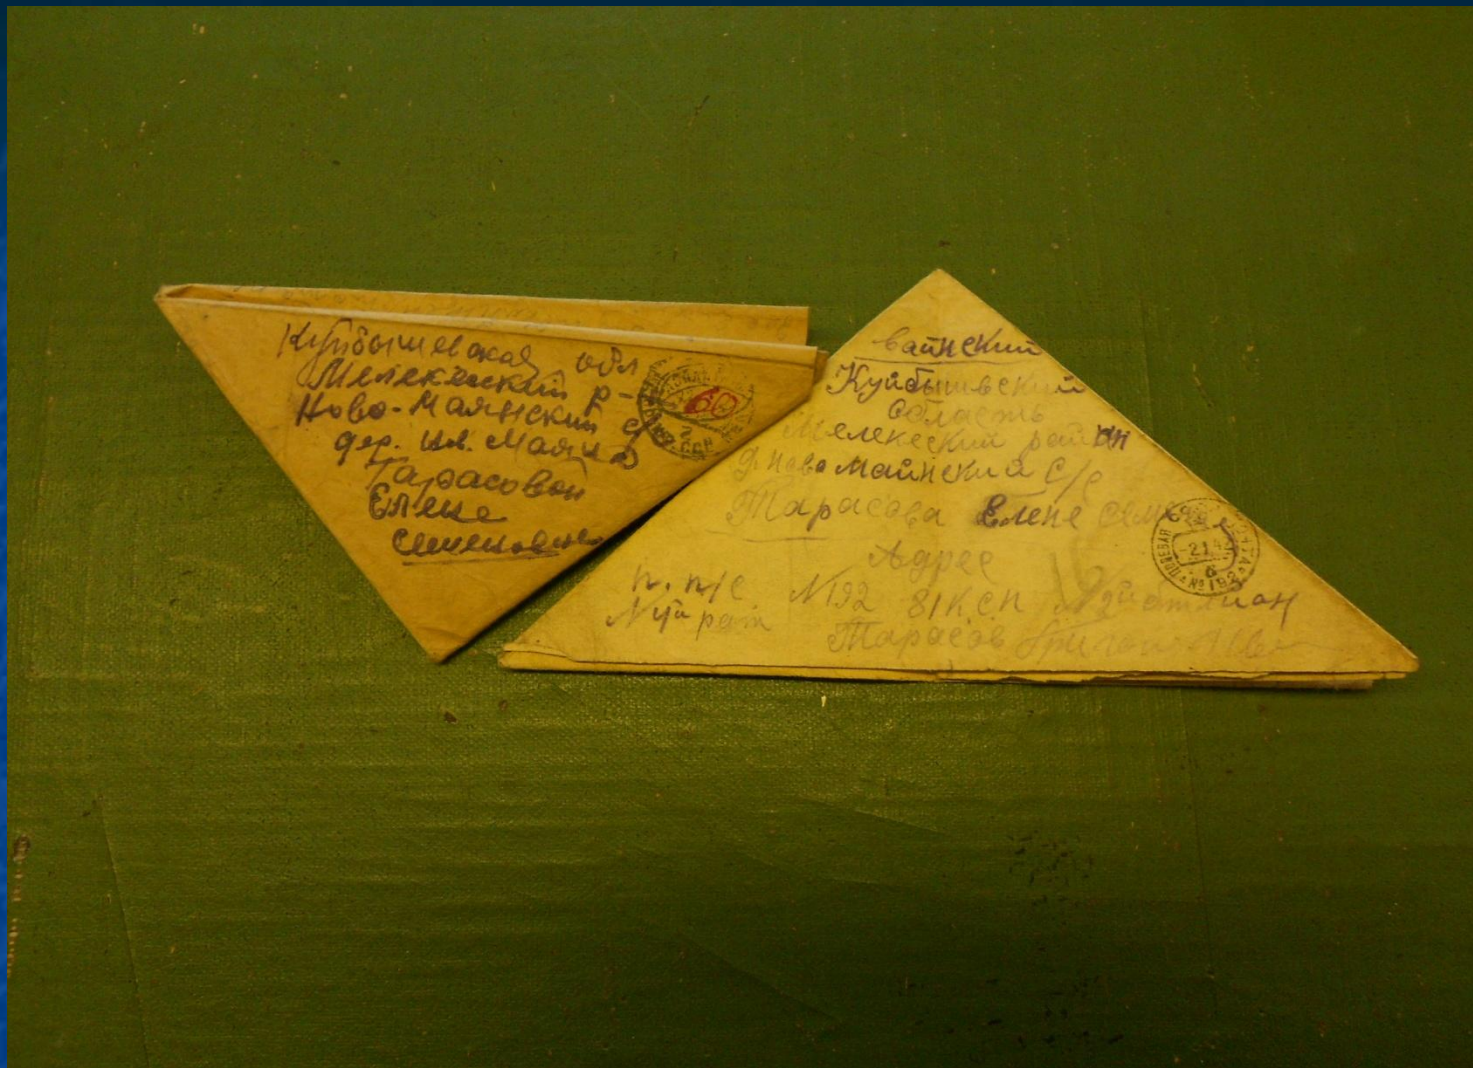 Куйбышевская обл
Мелекесский р-
Ново-Маянский с
дер. Маянa
Тарасовой
Елене
Семеновне
60
вайнский
Куйбышвский
область
Мелекеский район
д. Ново майнский с/с
Тарасова Елене
Адрес
п. п/с N 192 81 К.С.П
рота
Тарасов
ПОЛЕВАЯ
21
№ 192